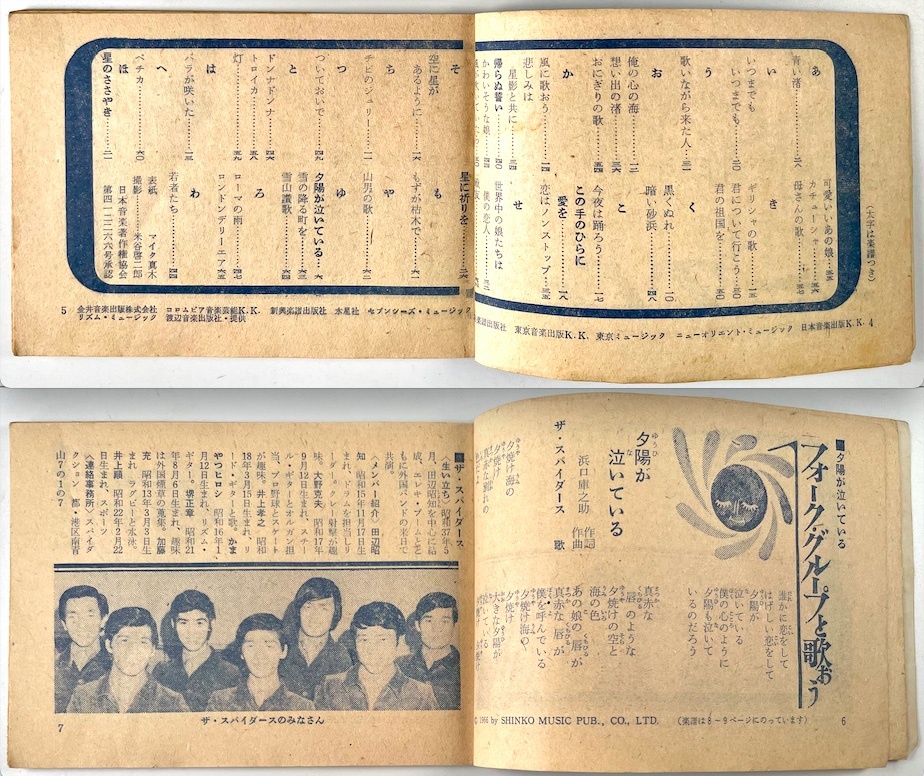 (太字は楽譜つき)
あ
青い渚……………三八
い
いつまでも
いつまでも………五〇
う
歌いながら来た人…三一
お
俺の心の海…………一二
想い出の渚…………三六
おにぎりの歌………五四
か
風に歌おう…………一四
悲しみは
星影と共に…………三四
帰らぬ誓い…………四〇
かわいそうな娘……四四
可愛いいあの娘……五五
カチューシャ………五三
母さんの歌
き
ギリシャの歌
君について行こう…三〇
君の祖国を…………五〇
く
黒くぬれ……………一八
暗い砂浜……………四八
こ
今夜は踊ろう………一七
この手のひらに
愛を…………………一八
恋はノンストップ…三五
せ
世界中の娘たちは
僕の恋人
そ
空に星が
あるように…………一六
ち
チビのジュリー……一一
つ
ついておいで………四九
と
ドンナドンナ………四六
トロイカ……………五八
灯……………………五九
は
バラが咲いた………一三
へ
ペチカ………………六〇
ほ
星のささやき………二一
星に祈りを…………二六
も
もずが枯木で………六一
や
山男の歌……………六二
ゆ
夕陽が泣いている…六
雪の降る町を………六三
雪山讃歌……………六四
ろ
ローマの雨…………四七
ロンドンデリーエア
わ
若者たち……………四四
表紙 マイク真木
撮影 米谷啓二郎
日本音楽著作権協会
第四一二二六六号承認
楽譜出版社 東京音楽出版K.K. 東京ミュージック ニューオリエント・ミュージック 日本音楽出版K.K. 4
5 金井音楽出版株式会社 コロムビア音楽芸能K.K. 新興楽譜出版社 水星社 セブンシーズ・ミュージック
リズム・ミュージック 渡辺音楽出版社・提供
■夕陽が泣いている
フォーク・グループと歌おう
夕陽が
ゆうひ
泣いている
な
浜口庫之助 作詞
作曲
ザ・スパイダース 歌
夕焼け海の
真赤な別れの
誰かに恋をして
はげしい恋をして
夕陽が
泣いている
僕の心のように
夕陽も泣いて
いるのだろう
真赤な
唇のような
夕焼けの空と
海の色
あの娘の唇が
真赤な唇が
僕を呼んでいる
夕焼け海の
夕焼け
大きな夕陽が
泣いている
© 1966 by SHINKO MUSIC PUB., CO., LTD. (楽譜は8−9ページにのっています) 6
■ザ・スパイダース
〈生い立ち〉昭和37年5
月、田辺昭知を中心に結
成、エレヤ・ブームと
もに外国バンドの来日で
共演。
〈メンバー紹介〉田辺昭
知 昭和15年11月17日生
まれ、ドラムを担当しリ
ーダー。クレー射撃が趣
味。大野克夫 昭和17年
9月12日生まれ、スチー
ル・ギターとオルガン担
当、プロ野球とスケート
が趣味。井上孝之 昭和
18年3月15日生まれ、リ
ード・ギターと歌。かま
やつヒロシ 昭和16年1
月12日生まれ、リズム・
ギター。堺正章 昭和21
年8月6日生まれ、趣味
は外国煙草の蒐集。加藤
充 昭和13年3月3日生
まれ、ラグビーと水泳。
井上順 昭和22年2月22
日生まれ、スポーツ
〈連絡事務所〉スパイダ
クション 都・港区南青
山7の1の7
ザ・スパイダースのみなさん
7